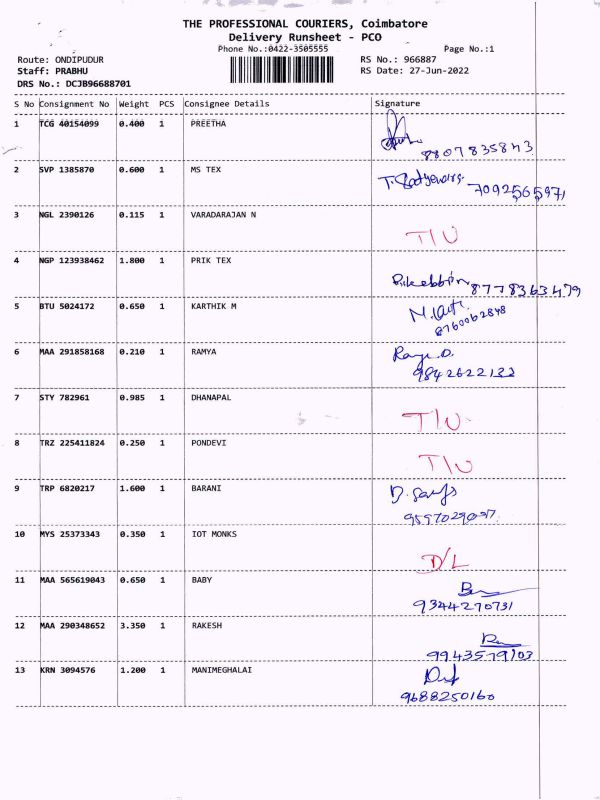 THE PROFESSIONAL COURIERS, Coimbatore
Delivery Runsheet - PCO
Phone No.:0422-3505555 Page No.:1
Route: ONDIPUDUR RS No.: 966887
Staff: PRABHU RS Date: 27-Jun-2022
DRS No.: DCJB96688701
S No Consignment No Weight PCS Consignee Details Signature
1 TCG 40154099 0.400 1 PREETHA
8807835843
2 SVP 1385870 0.600 1 MS TEX
7092565971
3 NGL 2390126 0.115 1 VARADARAJAN N
T/U
4 NGP 123938462 1.800 1 PRIK TEX
8778363479
5 BTU 5024172 0.650 1 KARTHIK M
8760062848
6 MAA 291858168 0.210 1 RAMYA
9842622133
7 STY 782961 0.985 1 DHANAPAL
T/U
8 TRZ 225411824 0.250 1 PONDEVI
T/U
9 TRP 6820217 1.600 1 BARANI
10 MYS 25373343 0.350 1 IOT MONKS
D/L
11 MAA 565619043 0.650 1 BABY
9344270731
12 MAA 290348652 3.350 1 RAKESH
9943579103
13 KRN 3094576 1.200 1 MANIMEGHALAI
9688250160